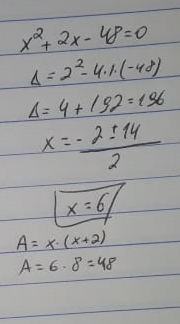 x² + 2x - 48 = 0
Δ = 2² - 4.1.(-48)
Δ = 4 + 192 = 196
x = - 2 ± 14
2
x = 6
A = x · (x+2)
A = 6 · 8 = 48